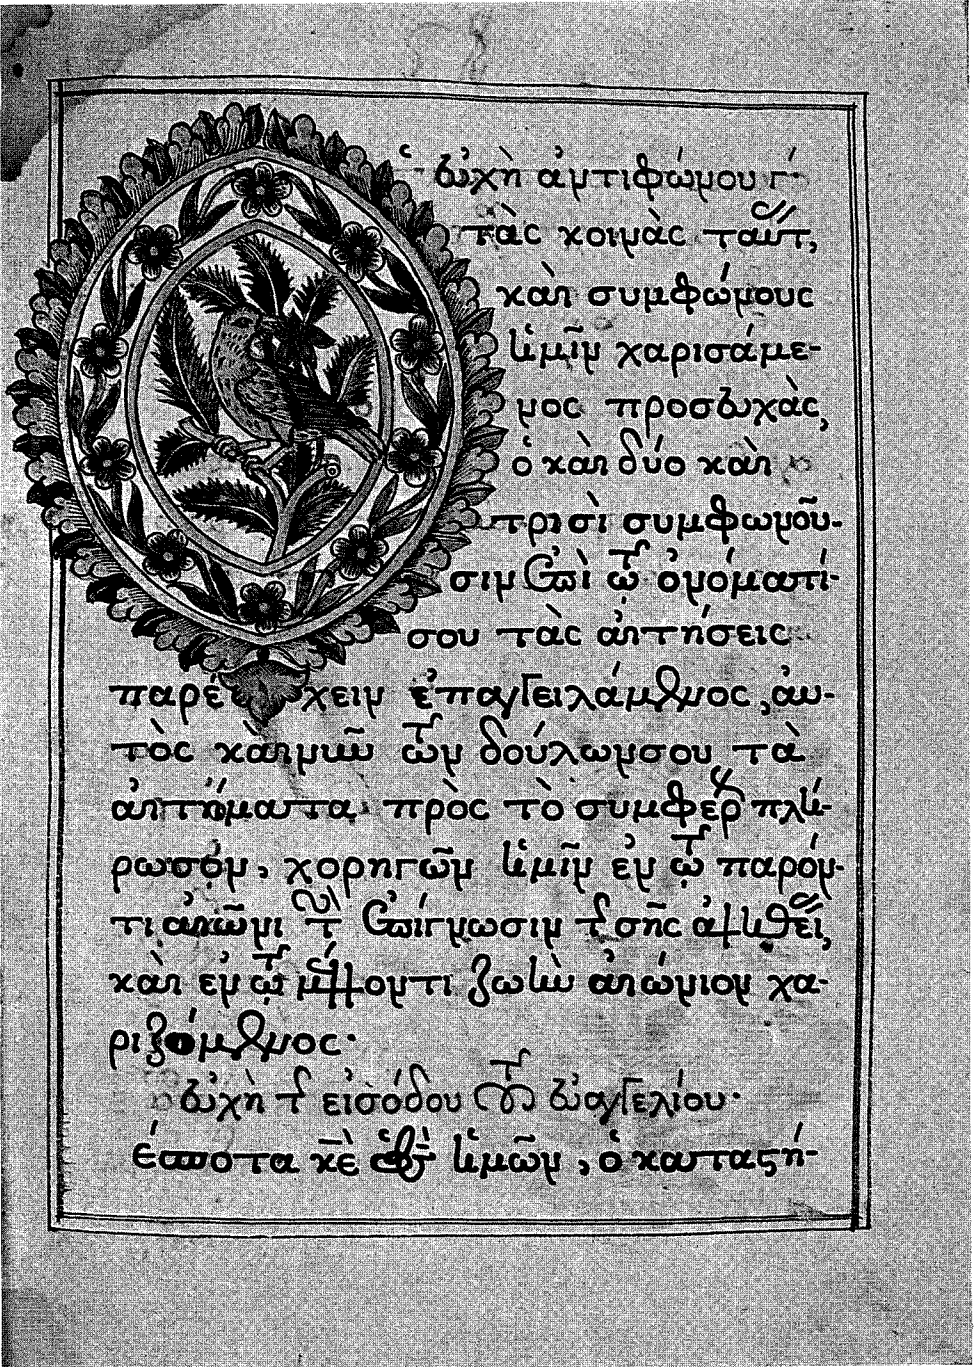 εὐχὴ ἀντιφώνου γ·
τὰς κοινὰς ταύτ,
καὶ συμφώνους
ἡμῖν χαρισάμε-
νος προσευχὰς,
ὁ καὶ δύο καὶ
τρισὶ συμφωνοῦ-
σιν ἐπὶ τῷ ὀνόματί
σου τὰς αἰτήσεις
παρέχειν ἐπαγγειλάμενος, αὐ-
τὸς καὶ νῦν τῶν δούλων σου τὰ
αἰτήματα πρὸς τὸ συμφέρον πλή-
ρωσον, χορηγῶν ἡμῖν ἐν τῷ παρόν-
τι αἰῶνι τὴν ἐπίγνωσιν τῆς σῆς ἀληθείας,
καὶ ἐν τῷ μέλλοντι ζωὴν αἰώνιον χα-
ριζόμενος·
εὐχὴ τῆς εἰσόδου τοῦ εὐαγγελίου·
έσποτα κε ὁ θς ἡμῶν, ὁ καταστή-